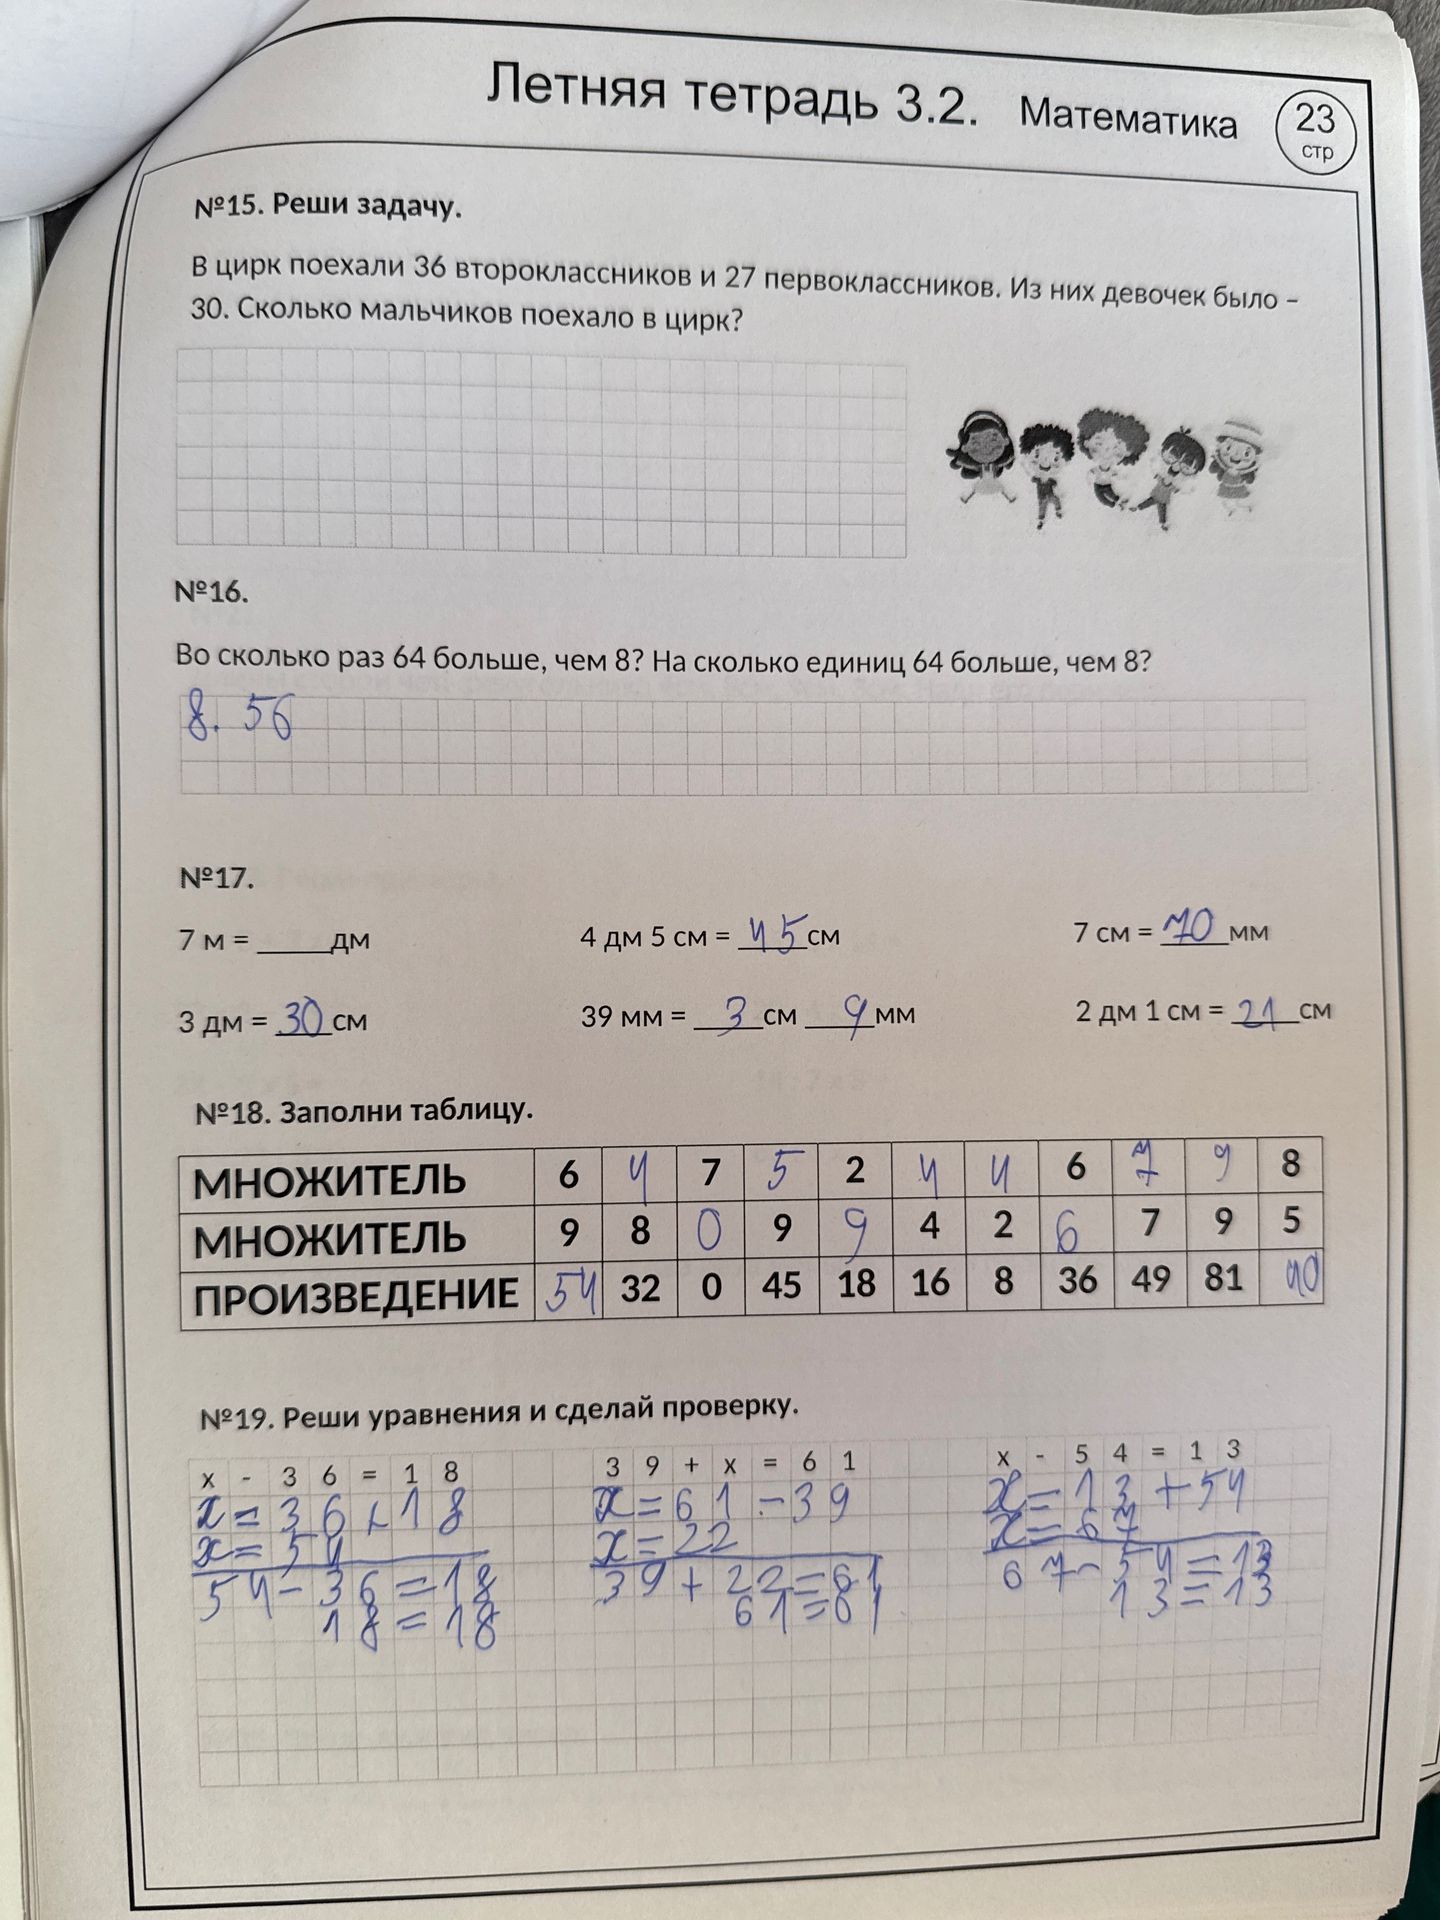 Летняя тетрадь 3.2. Математика 23 стр
№15. Реши задачу.
В цирк поехали 36 второклассников и 27 первоклассников. Из них девочек было –
30. Сколько мальчиков поехало в цирк?
№16.
Во сколько раз 64 больше, чем 8? На сколько единиц 64 больше, чем 8?
8. 56
№17.
7 м = _____дм 4 дм 5 см = 45см 7 см = 70мм
3 дм = 30см 39 мм = 3см 9мм 2 дм 1 см = 21см
№18. Заполни таблицу.
МНОЖИТЕЛЬ 6 4 7 5 2 4 4 6 7 9 8
МНОЖИТЕЛЬ 9 8 0 9 9 4 2 6 7 9 5
ПРОИЗВЕДЕНИЕ 54 32 0 45 18 16 8 36 49 81 40
№19. Реши уравнения и сделай проверку.
x - 3 6 = 1 8 3 9 + x = 6 1 x - 5 4 = 1 3
x = 3 6 + 1 8 x = 6 1 - 3 9 x = 1 3 + 5 4
x = 5 4 x = 2 2 x = 6 7
5 4 - 3 6 = 1 8 3 9 + 2 2 = 6 1 6 7 - 5 4 = 1 3
1 8 = 1 8 6 1 = 6 1 1 3 = 1 3